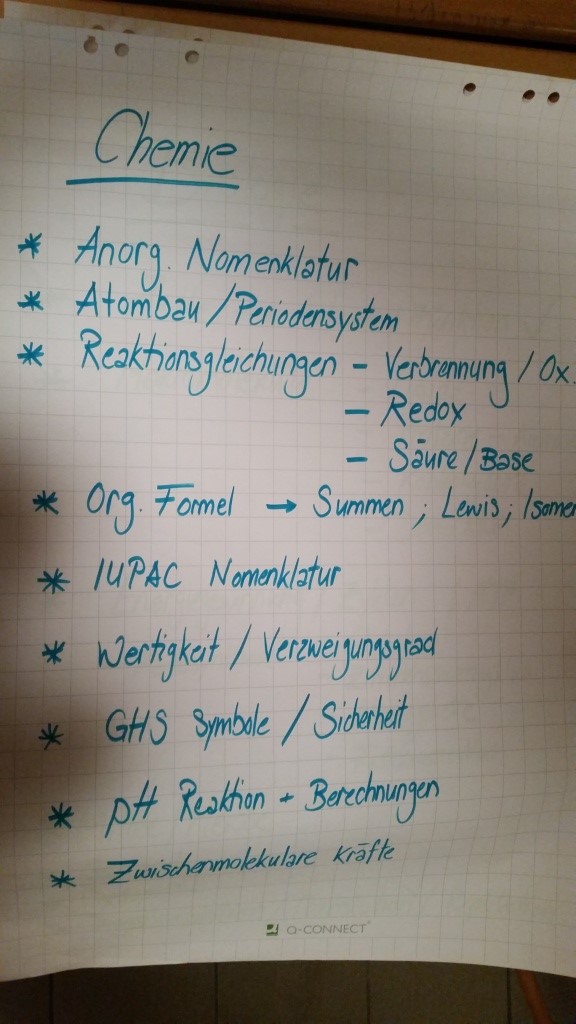 Chemie
* Anorg. Nomenklatur
* Atombau / Periodensystem
* Reaktionsgleichungen - Verbrennung / Ox.
- Redox
- Säure / Base
* Org. Formel → Summen ; Lewis ; Isomer
* IUPAC Nomenklatur
* Wertigkeit / Verzweigungsgrad
* GHS Symbole / Sicherheit
* pH Reaktion + Berechnungen
* Zwischenmolekulare Kräfte
Q-CONNECT®